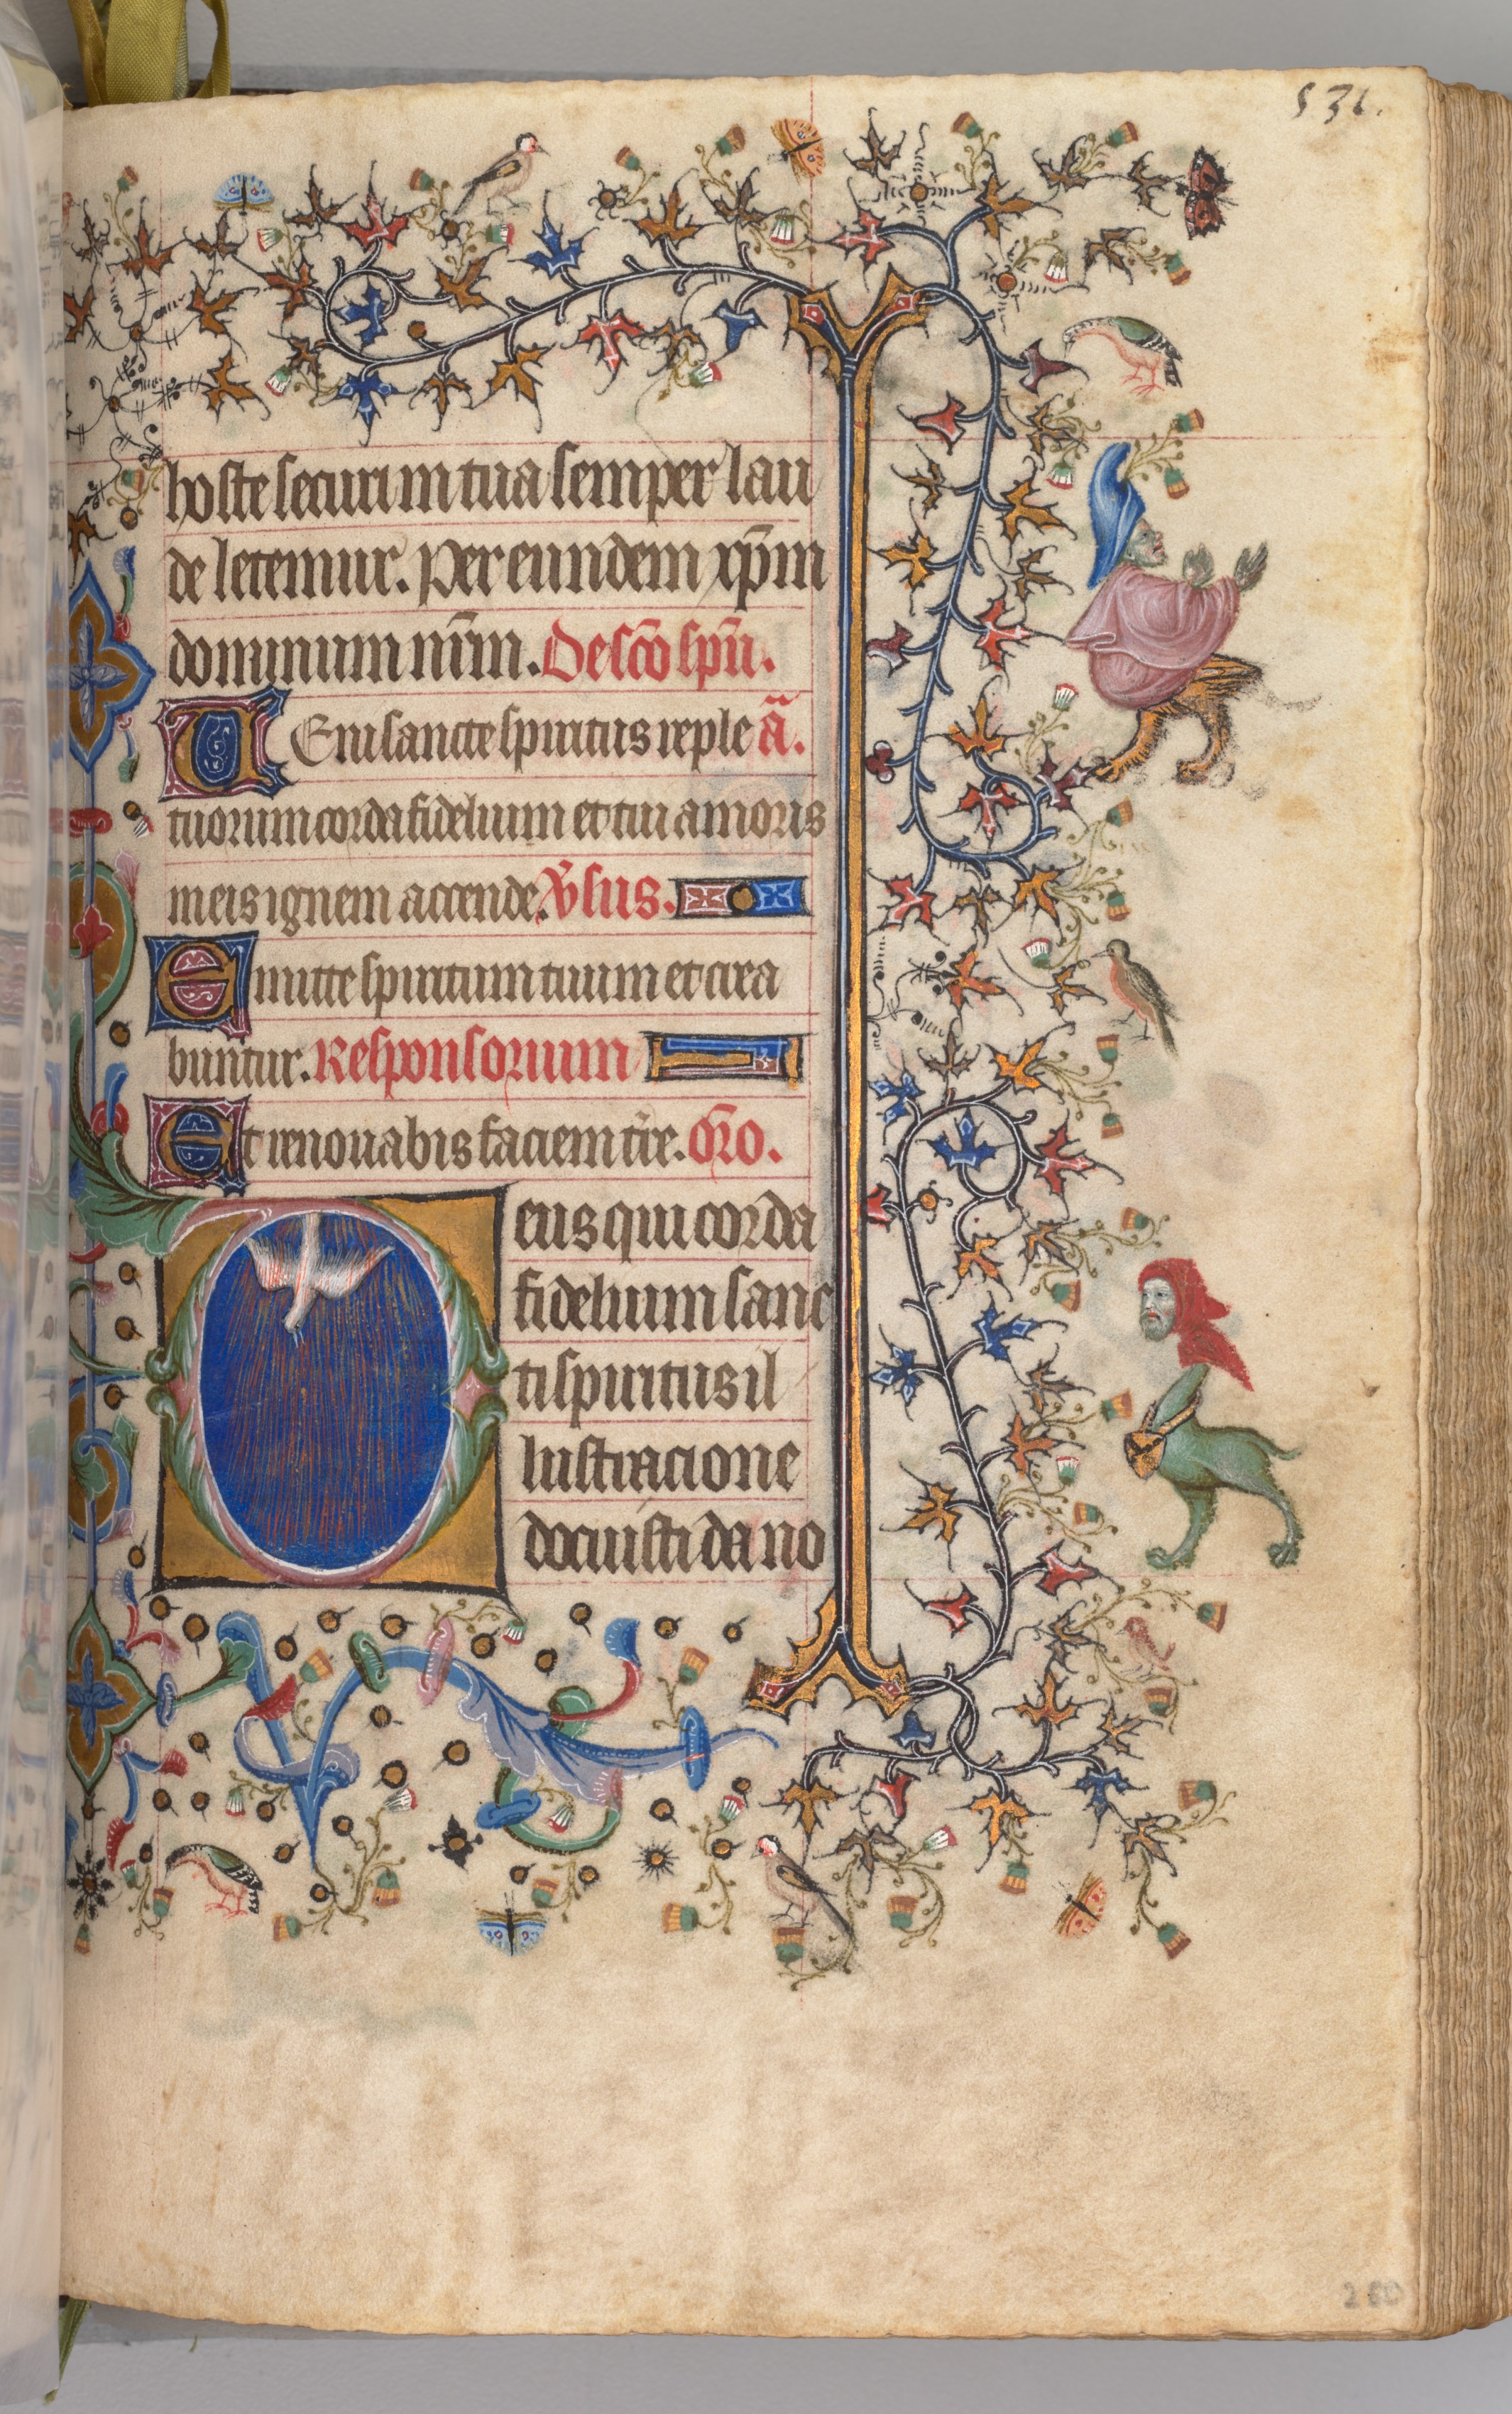 531.
hoste securi in tua semper lau
de letemur. Per eundem xp̄m
dominum nr̄m. De sc̄o sp̄u.
Veni sancte spiritus reple a͂.
tuorum corda fidelium et tui amoris
in eis ignem accende. V̄sus.
Emitte spiritum tuum et crea
buntur. Responsorium
Et renouabis faciem tr̄re. Or̄o.
Deus qui corda
fidelium sanc
ti spiritus il
lustracione
docuisti da no